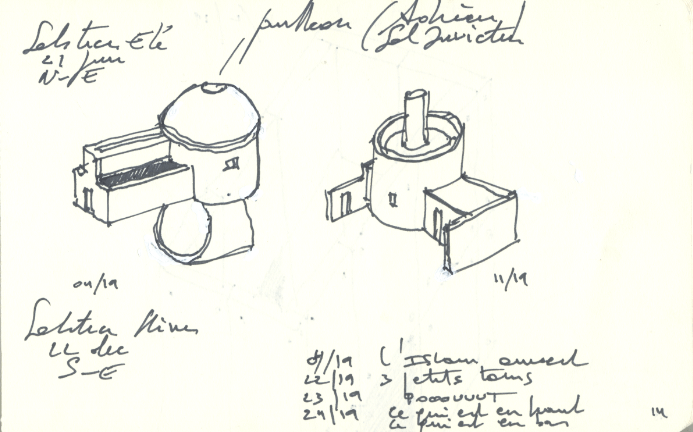 Solstice Eté
21 juin
N-E
pantheon (Adrien)
Sol Invictus
04/19
11/19
Solstice Hiver
22 dec
S-E
01/19 L'Islam ouvert
22/19 3 petits tours
23/19 POOOUUUT
24/19 ce qui est en haut
ce qui est en bas